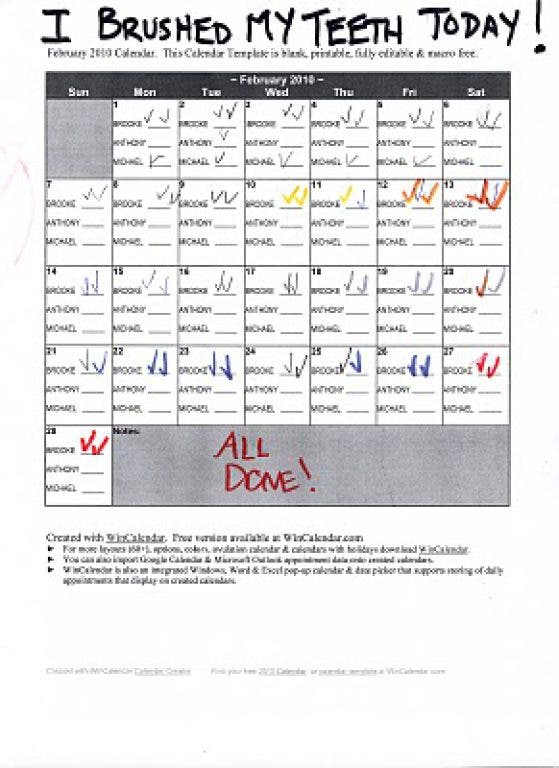 I BRUSHED MY TEETH TODAY!
February 2010 Calendar. This Calendar Template is blank, printable, fully editable & macro free.
~ February 2010 ~
Sun Mon Tue Wed Thu Fri Sat
1 2 3 4 5 6
BROOKE BROOKE BROOKE BROOKE BROOKE BROOKE
ANTHONY ANTHONY ANTHONY ANTHONY ANTHONY ANTHONY
MICHAEL MICHAEL MICHAEL MICHAEL MICHAEL MICHAEL
7 8 9 10 11 12 13
BROOKE BROOKE BROOKE BROOKE BROOKE BROOKE BROOKE
ANTHONY ANTHONY ANTHONY ANTHONY ANTHONY ANTHONY ANTHONY
MICHAEL MICHAEL MICHAEL MICHAEL MICHAEL MICHAEL MICHAEL
14 15 16 17 18 19 20
BROOKE BROOKE BROOKE BROOKE BROOKE BROOKE BROOKE
ANTHONY ANTHONY ANTHONY ANTHONY ANTHONY ANTHONY ANTHONY
MICHAEL MICHAEL MICHAEL MICHAEL MICHAEL MICHAEL MICHAEL
21 22 23 24 25 26 27
BROOKE BROOKE BROOKE BROOKE BROOKE BROOKE BROOKE
ANTHONY ANTHONY ANTHONY ANTHONY ANTHONY ANTHONY ANTHONY
MICHAEL MICHAEL MICHAEL MICHAEL MICHAEL MICHAEL MICHAEL
28 Notes:
BROOKE ALL
ANTHONY DONE!
MICHAEL
Created with WinCalendar. Free version available at WinCalendar.com
► For more layouts (60+), options, colors, ovulation calendar & calendars with holidays download WinCalendar.
► You can also import Google Calendar & Microsoft Outlook appointment data onto created calendars.
► WinCalendar is also an integrated Windows, Word & Excel pop-up calendar & date picker that supports storing of daily
appointments that display on created calendars.
Created with WinCalendar Calendar Creator Find your free 2010 Calendar or calendar template at WinCalendar.com